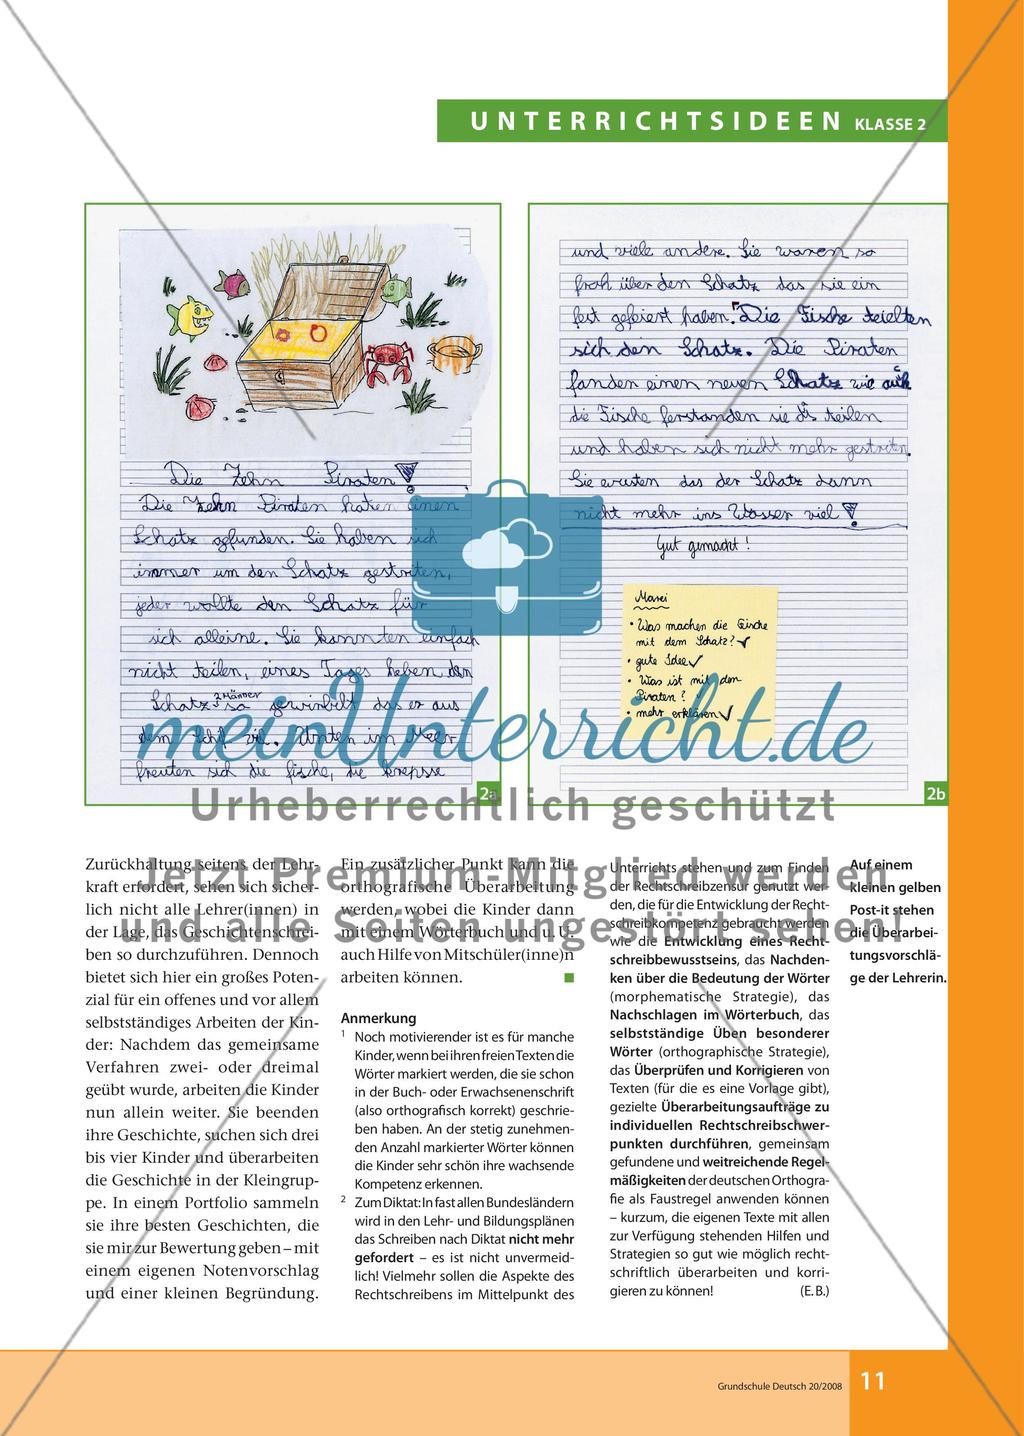 UNTERRICHTSIDEEN KLASSE 2
Die Zehn Piraten!
Die Zehn Piraten haten einen
Schatz gefunden. Sie haben sich
immer um den Schatz gestreiten,
jeder wollte den Schatz für
sich alleine. Sie konnten einfach
nicht teilen, eines Tages heben den
2 Männer
Schatz so gewinbelt das er aus
dem Schif viel. Unten im Meer
freuten sich die fische, die krepsse
2a
und viele andere. Sie waren so
froh über den Schatz das sie ein
fest gefeiert haben. Die Fische teielten
sich den Schatz. Die Piraten
fanden einen neuen Schatz wie auch
die Fische ferstanden sie das teilen
und haben sich nicht mehr gestreiten.
Sie wusten das der Schatz dann
nicht mehr ins Wasser viel!
Gut gemacht!
Marei
• Was machen die Fische
mit dem Schatz? ✓
• gute Idee ✓
• Was ist mit den
Piraten?
• mehr erklären ✓
2b
meinUnterricht.de
Urheberrechtlich geschützt
Jetzt Premium-Mitglied werden
und alle Seiten ungestört sehen!
Zurückhaltung seitens der Lehr-
kraft erfordert, sehen sich sicher-
lich nicht alle Lehrer(innen) in
der Lage, das Geschichtenschrei-
ben so durchzuführen. Dennoch
bietet sich hier ein großes Poten-
zial für ein offenes und vor allem
selbstständiges Arbeiten der Kin-
der: Nachdem das gemeinsame
Verfahren zwei- oder dreimal
geübt wurde, arbeiten die Kinder
nun allein weiter. Sie beenden
ihre Geschichte, suchen sich drei
bis vier Kinder und überarbeiten
die Geschichte in der Kleingrup-
pe. In einem Portfolio sammeln
sie ihre besten Geschichten, die
sie mir zur Bewertung geben – mit
einem eigenen Notenvorschlag
und einer kleinen Begründung.
Ein zusätzlicher Punkt kann die
orthografische Überarbeitung
werden, wobei die Kinder dann
mit einem Wörterbuch und u. U.
auch Hilfe von Mitschüler(inne)n
arbeiten können.
Anmerkung
1 Noch motivierender ist es für manche
Kinder, wenn bei ihren freien Texten die
Wörter markiert werden, die sie schon
in der Buch- oder Erwachsenenschrift
(also orthografisch korrekt) geschrie-
ben haben. An der stetig zunehmen-
den Anzahl markierter Wörter können
die Kinder sehr schön ihre wachsende
Kompetenz erkennen.
2 Zum Diktat: In fast allen Bundesländern
wird in den Lehr- und Bildungsplänen
das Schreiben nach Diktat nicht mehr
gefordert – es ist nicht unvermeid-
lich! Vielmehr sollen die Aspekte des
Rechtschreibens im Mittelpunkt des
Unterrichts stehen und zum Finden
der Rechtschreibzensur genutzt wer-
den, die für die Entwicklung der Recht-
schreibkompetenz gebraucht werden
wie die Entwicklung eines Recht-
schreibbewusstseins, das Nachden-
ken über die Bedeutung der Wörter
(morphematische Strategie), das
Nachschlagen im Wörterbuch, das
selbstständige Üben besonderer
Wörter (orthographische Strategie),
das Überprüfen und Korrigieren von
Texten (für die es eine Vorlage gibt),
gezielte Überarbeitungsaufträge zu
individuellen Rechtschreibschwer-
punkten durchführen, gemeinsam
gefundene und weitreichende Regel-
mäßigkeiten der deutschen Orthogra-
fie als Faustregel anwenden können
– kurzum, die eigenen Texte mit allen
zur Verfügung stehenden Hilfen und
Strategien so gut wie möglich recht-
schriftlich überarbeiten und korri-
gieren zu können! (E. B.)
Auf einem
kleinen gelben
Post-it stehen
die Überarbei-
tungsvorschlä-
ge der Lehrerin.
Grundschule Deutsch 20/2008 11